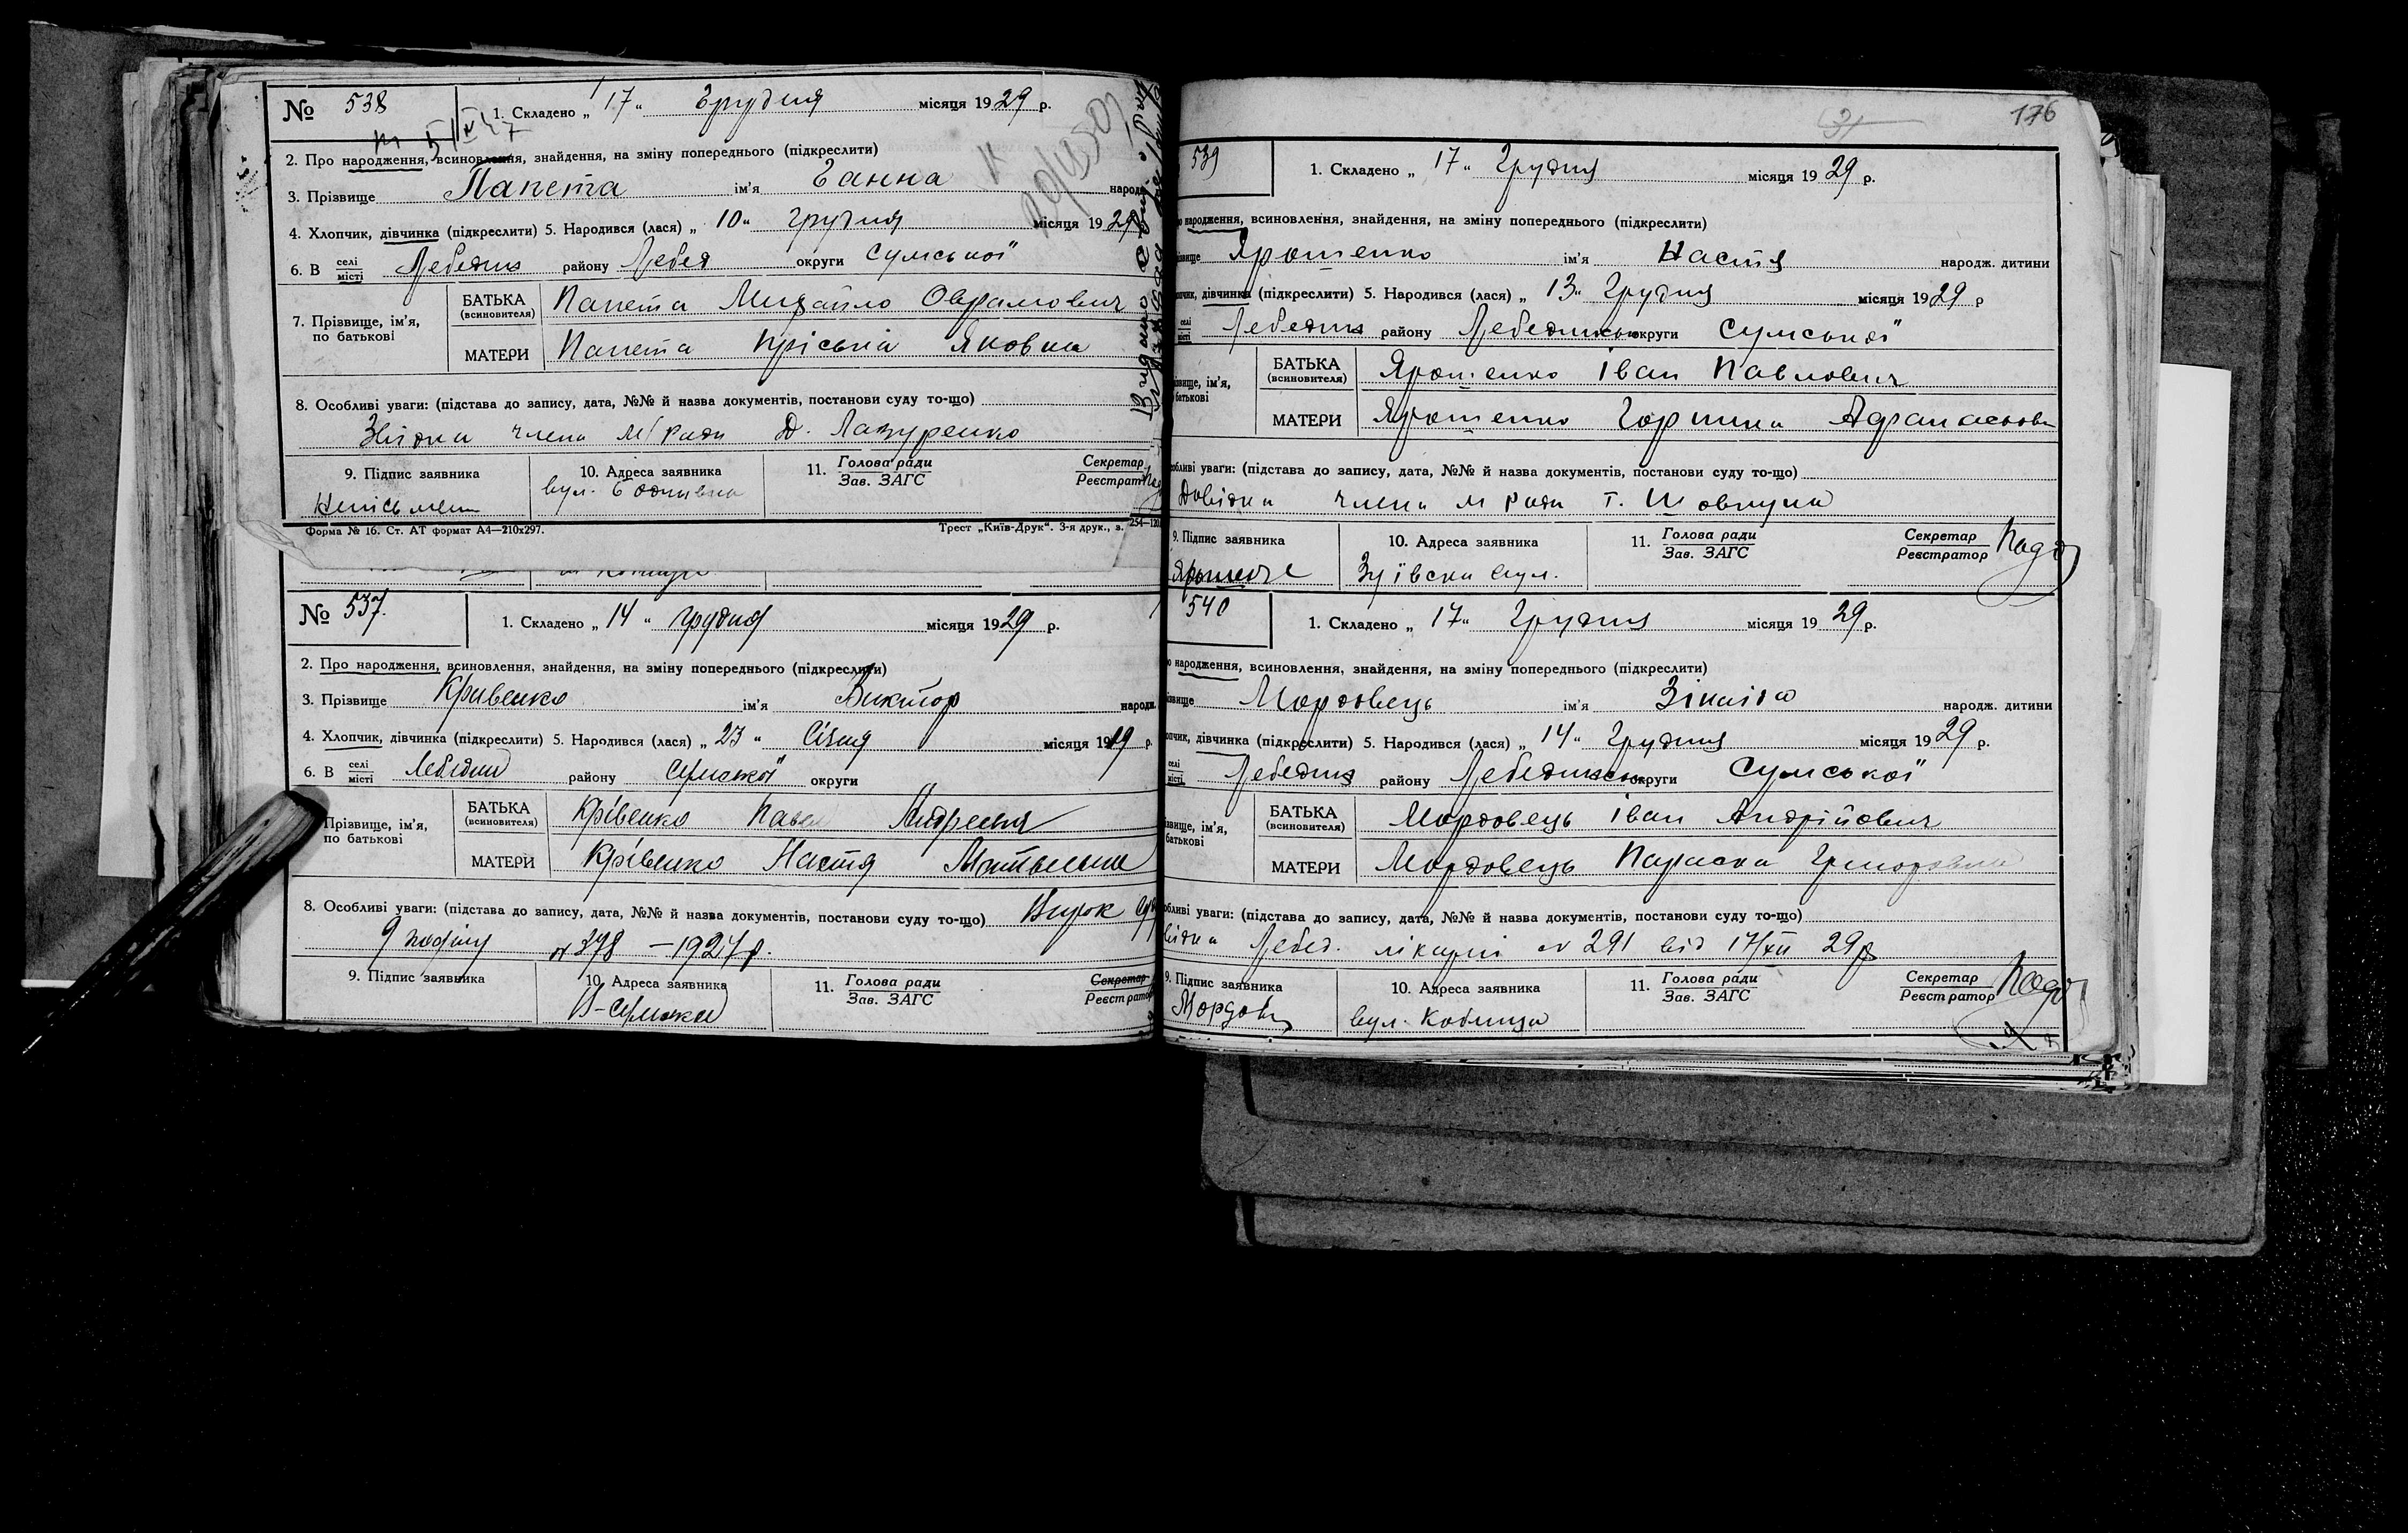 № 538
1. Складено „ 17 “ Грудня місяця 1929 р.
2. Про народження, всиновлення, знайдення, на зміну попереднього (підкреслити)
3. Прізвище Папета ім'я Ганна народж.
4. Хлопчик, дівчинка (підкреслити) 5. Народився (лася) „ 10 “ грудня місяця 1929
6. В селі місті Лебедин району Лебед округи Сумської
7. Прізвище, ім'я, по батькові
БАТЬКА (всиновителя) Папета Михайло Оврамович
МАТЕРИ Папета Пріська Яковна
8. Особливі уваги: (підстава до запису, дата, №№ й назва документів, постанови суду то-що)
члена М/Ради Д. Лазуренко
9. Підпис заявника
10. Адреса заявника
вул.
11. Голова ради
Зав. ЗАГС
Секретар
Реєстрат
Форма № 16. Ст. АТ формат А4—210х297.
Трест „Київ-Друк“. 3-я друк., з.
№ 537.
1. Складено „ 14 “ грудня місяця 1929 р.
2. Про народження, всиновлення, знайдення, на зміну попереднього (підкреслити)
3. Прізвище Кривенко ім'я Виктор народж.
4. Хлопчик, дівчинка (підкреслити) 5. Народився (лася) „ 23 “ Січня місяця 19 р.
6. В селі місті Лебедин району Сумської округи
Прізвище, ім'я, по батькові
БАТЬКА (всиновителя) Крівенко Павел Андреевич
МАТЕРИ Крівенко Настя
8. Особливі уваги: (підстава до запису, дата, №№ й назва документів, постанови суду то-що) Вирок
№ 378 — 1927 р.
9. Підпис заявника
10. Адреса заявника
11. Голова ради
Зав. ЗАГС
Секретар
Реєстратор
176
539
1. Складено „ 17 “ Грудня місяця 1929 р.
народження, всиновлення, знайдення, на зміну попереднього (підкреслити)
Ярошенко ім'я Настя народж. дитини
дівчинка (підкреслити) 5. Народився (лася) „ 13 “ Грудня місяця 1929 р
селі місті Лебедин району Лебединськ округи Сумської
БАТЬКА (всиновителя) Ярошенко Іван Павлович
МАТЕРИ Ярошенко Горпина
уваги: (підстава до запису, дата, №№ й назва документів, постанови суду то-що)
Довідка члена М Ради Т. Шовкуна
9. Підпис заявника
10. Адреса заявника
Зуївска вул.
11. Голова ради
Зав. ЗАГС
Секретар
Реєстратор
540
1. Складено „ 17 “ Грудня місяця 1929 р.
народження, всиновлення, знайдення, на зміну попереднього (підкреслити)
Мордовець ім'я Зінаіда народж. дитини
дівчинка (підкреслити) 5. Народився (лася) „ 14 “ Грудня місяця 1929 р.
селі місті Лебедин району Лебединськ округи Сумської
БАТЬКА (всиновителя) Мордовець Іван Андрійович
МАТЕРИ Мордовець Параска Григоровна
уваги: (підстава до запису, дата, №№ й назва документів, постанови суду то-що)
Лебед. лікарні № 291 від 17/XII 29 р
9. Підпис заявника
10. Адреса заявника
вул. Кобища
11. Голова ради
Зав. ЗАГС
Секретар
Реєстратор